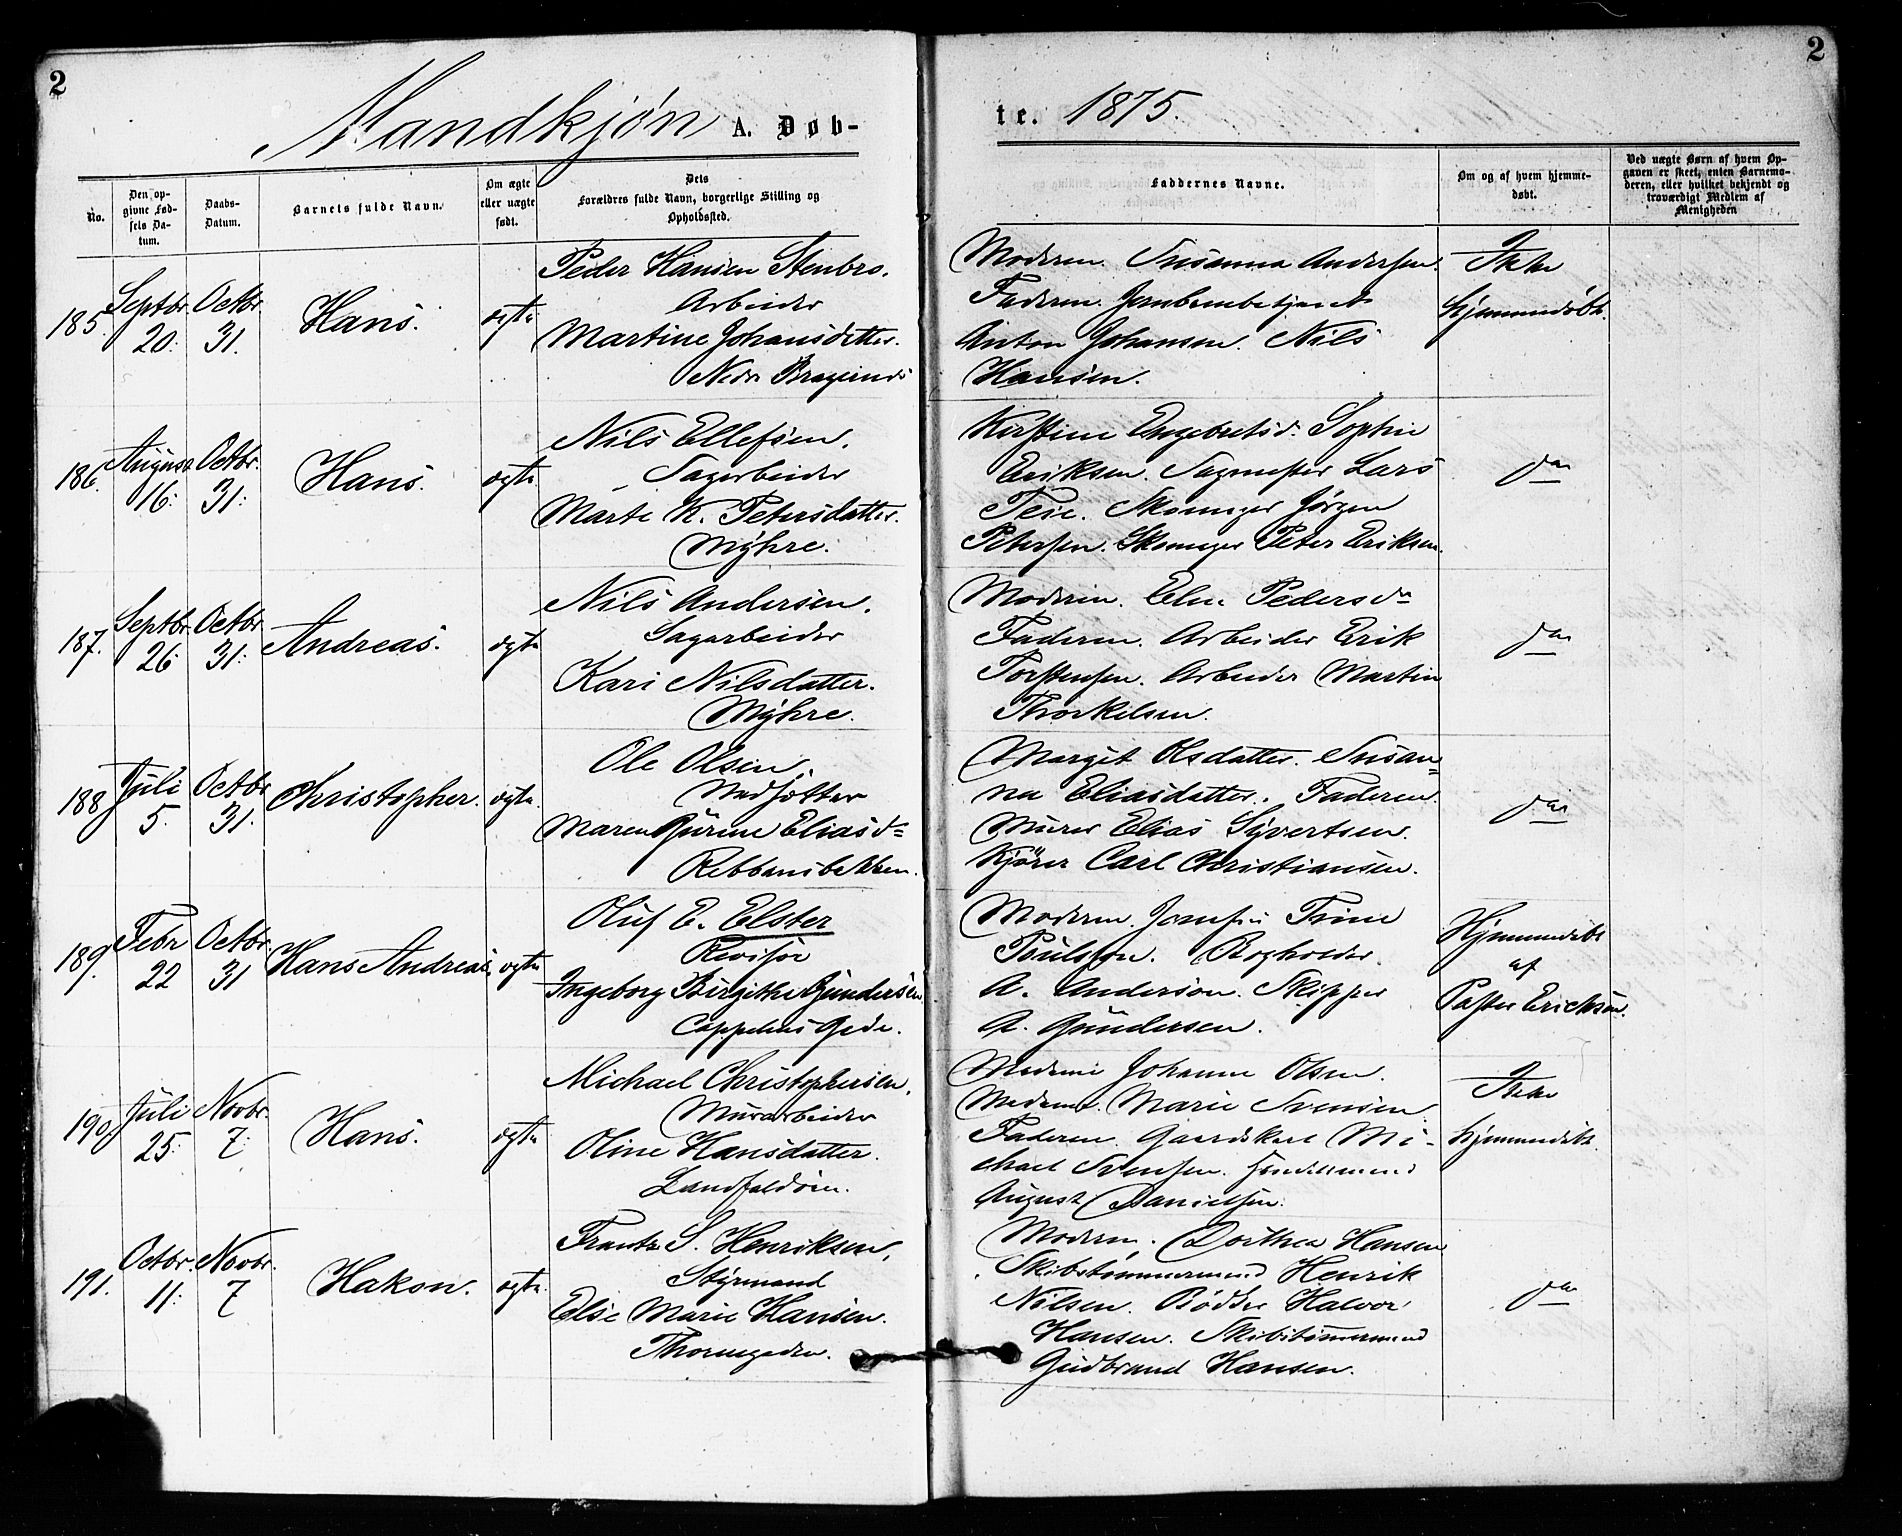 2
Mandkjøn A. Døb-
te. 1875.
2
No.
Den op-
givne Fød-
sels Da-
tum.
Daabs-
Datum.
Barnets fulde Navn.
Om ægte
eller uægte
født.
Dets
Forældres fulde Navn, borgerlige Stilling og
Opholdssted.
Faddernes Navne.
Om og af hvem hjemme-
døbt.
Ved uægte Børn af hvem Op-
gaven er skeet, enten Barnemo-
deren, eller hvilket bekjendt og
troværdigt Medlem af
Menigheden
185.
Septbr.
20.
Octbr.
31.
Hans.
ægte
Peder Hansen Stenbro.
Arbeider
Martine Johansdatter.
Nedre Bragernes
Moderen. Susanna Andersen.
Faderen. Jernbanebetjent
Anton Johansen. Nils
Hansen.
Ikke
hjemmedøbt.
186.
August
16.
Octbr.
31.
Hans.
ægte
Nils Ellefsen.
Sagarbeider
Marte K. Petersdatter.
Myhre.
Kirstine Engebretsd. Sophie
Eriksen. Sagmester Lars
Teie. Skomager Jørgen
Petersen. Skomager Peter Eriksen.
do
187.
Septbr.
26
Octbr.
31.
Andreas.
ægte
Nils Andersen.
Sagarbeider
Kari Nilsdatter.
Myhre.
Moderen. Elen Pedersdr
Faderen. Arbeider Erik
Torstensen. Arbeider Martin
Thorkelsen.
do
188
Juli
5.
Octbr
31.
Christopher.
ægte.
Ole Olsen.
Maren Gurine Eliasd=
Rebbansbakken.
Margit Olsdatter. Susan=
na Eliasdatter. Faderen.
Murer Elias Syvertsen.
Kjører Carl Christiansen.
do
189.
Febr
22
Octbr.
31
Hans Andreas.
ægte
Oluf E. Elster
Revisor
Ingeborg Birgithe Gundersen
Cappelens Gade.
Moderen. Josefine Trine
Poulsson. Bogholder.
A. Anderson. Skipper
A. Gundersen.
Hjemmedøbt
af
Pastor Erichsen.
190
Juli
25.
Novbr.
7.
Hans.
ægte
Michael Christophersen.
Murarbeider
Oline Hansdatter.
Landfaldøen.
Madame Johanne Olsen.
Madame. Marie Svensen
Faderen. Gaardskarl Mi-
chael Svensen. Handelsmand
August Danielsen.
Ikke
hjemmedøbt.
191.
Octbr.
11.
Novbr.
7
Hakon.
ægte.
Frantz S. Henriksen,
Styrmand
Else Marie Hansen.
Thornegaden.
Moderen. Dorthea Hansen
Skibstømmermand Henrik
Nilsen. Bødker Halvor
Hansen. Skibstømmermand
Gudbrand Hansen.
do